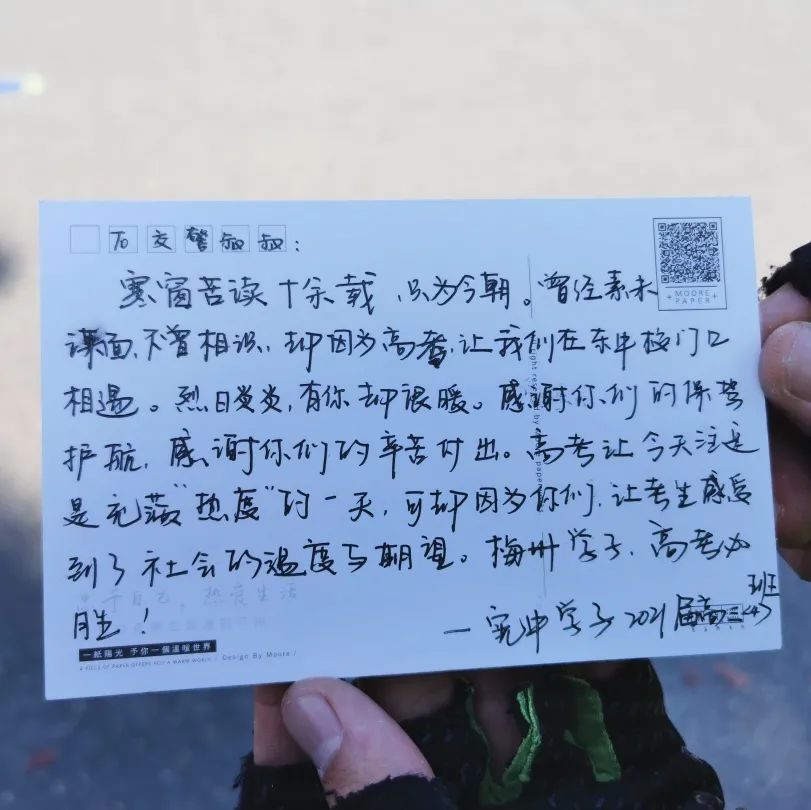 To 交警叔叔:
MOORE
PAPER
寒窗苦读十余载,只为今朝。曾经素未
谋面,不曾相识,却因为高考,让我们在东中校门口
相遇。烈日炎炎,有你却很暖。感谢你们的保驾
护航,感谢你们的辛苦付出。高考让今天注定
是充荡“热度”的一天,可却因为你们,让考生感受
到了社会的温度与期望。梅州学子,高考必
胜!
热度生活
—宪中学子2021届高三(4)班
一紙陽光 予你一個溫暖世界
A PIECE OF PAPER OFFERS YOU A WARM WORLD / Design By Moore /